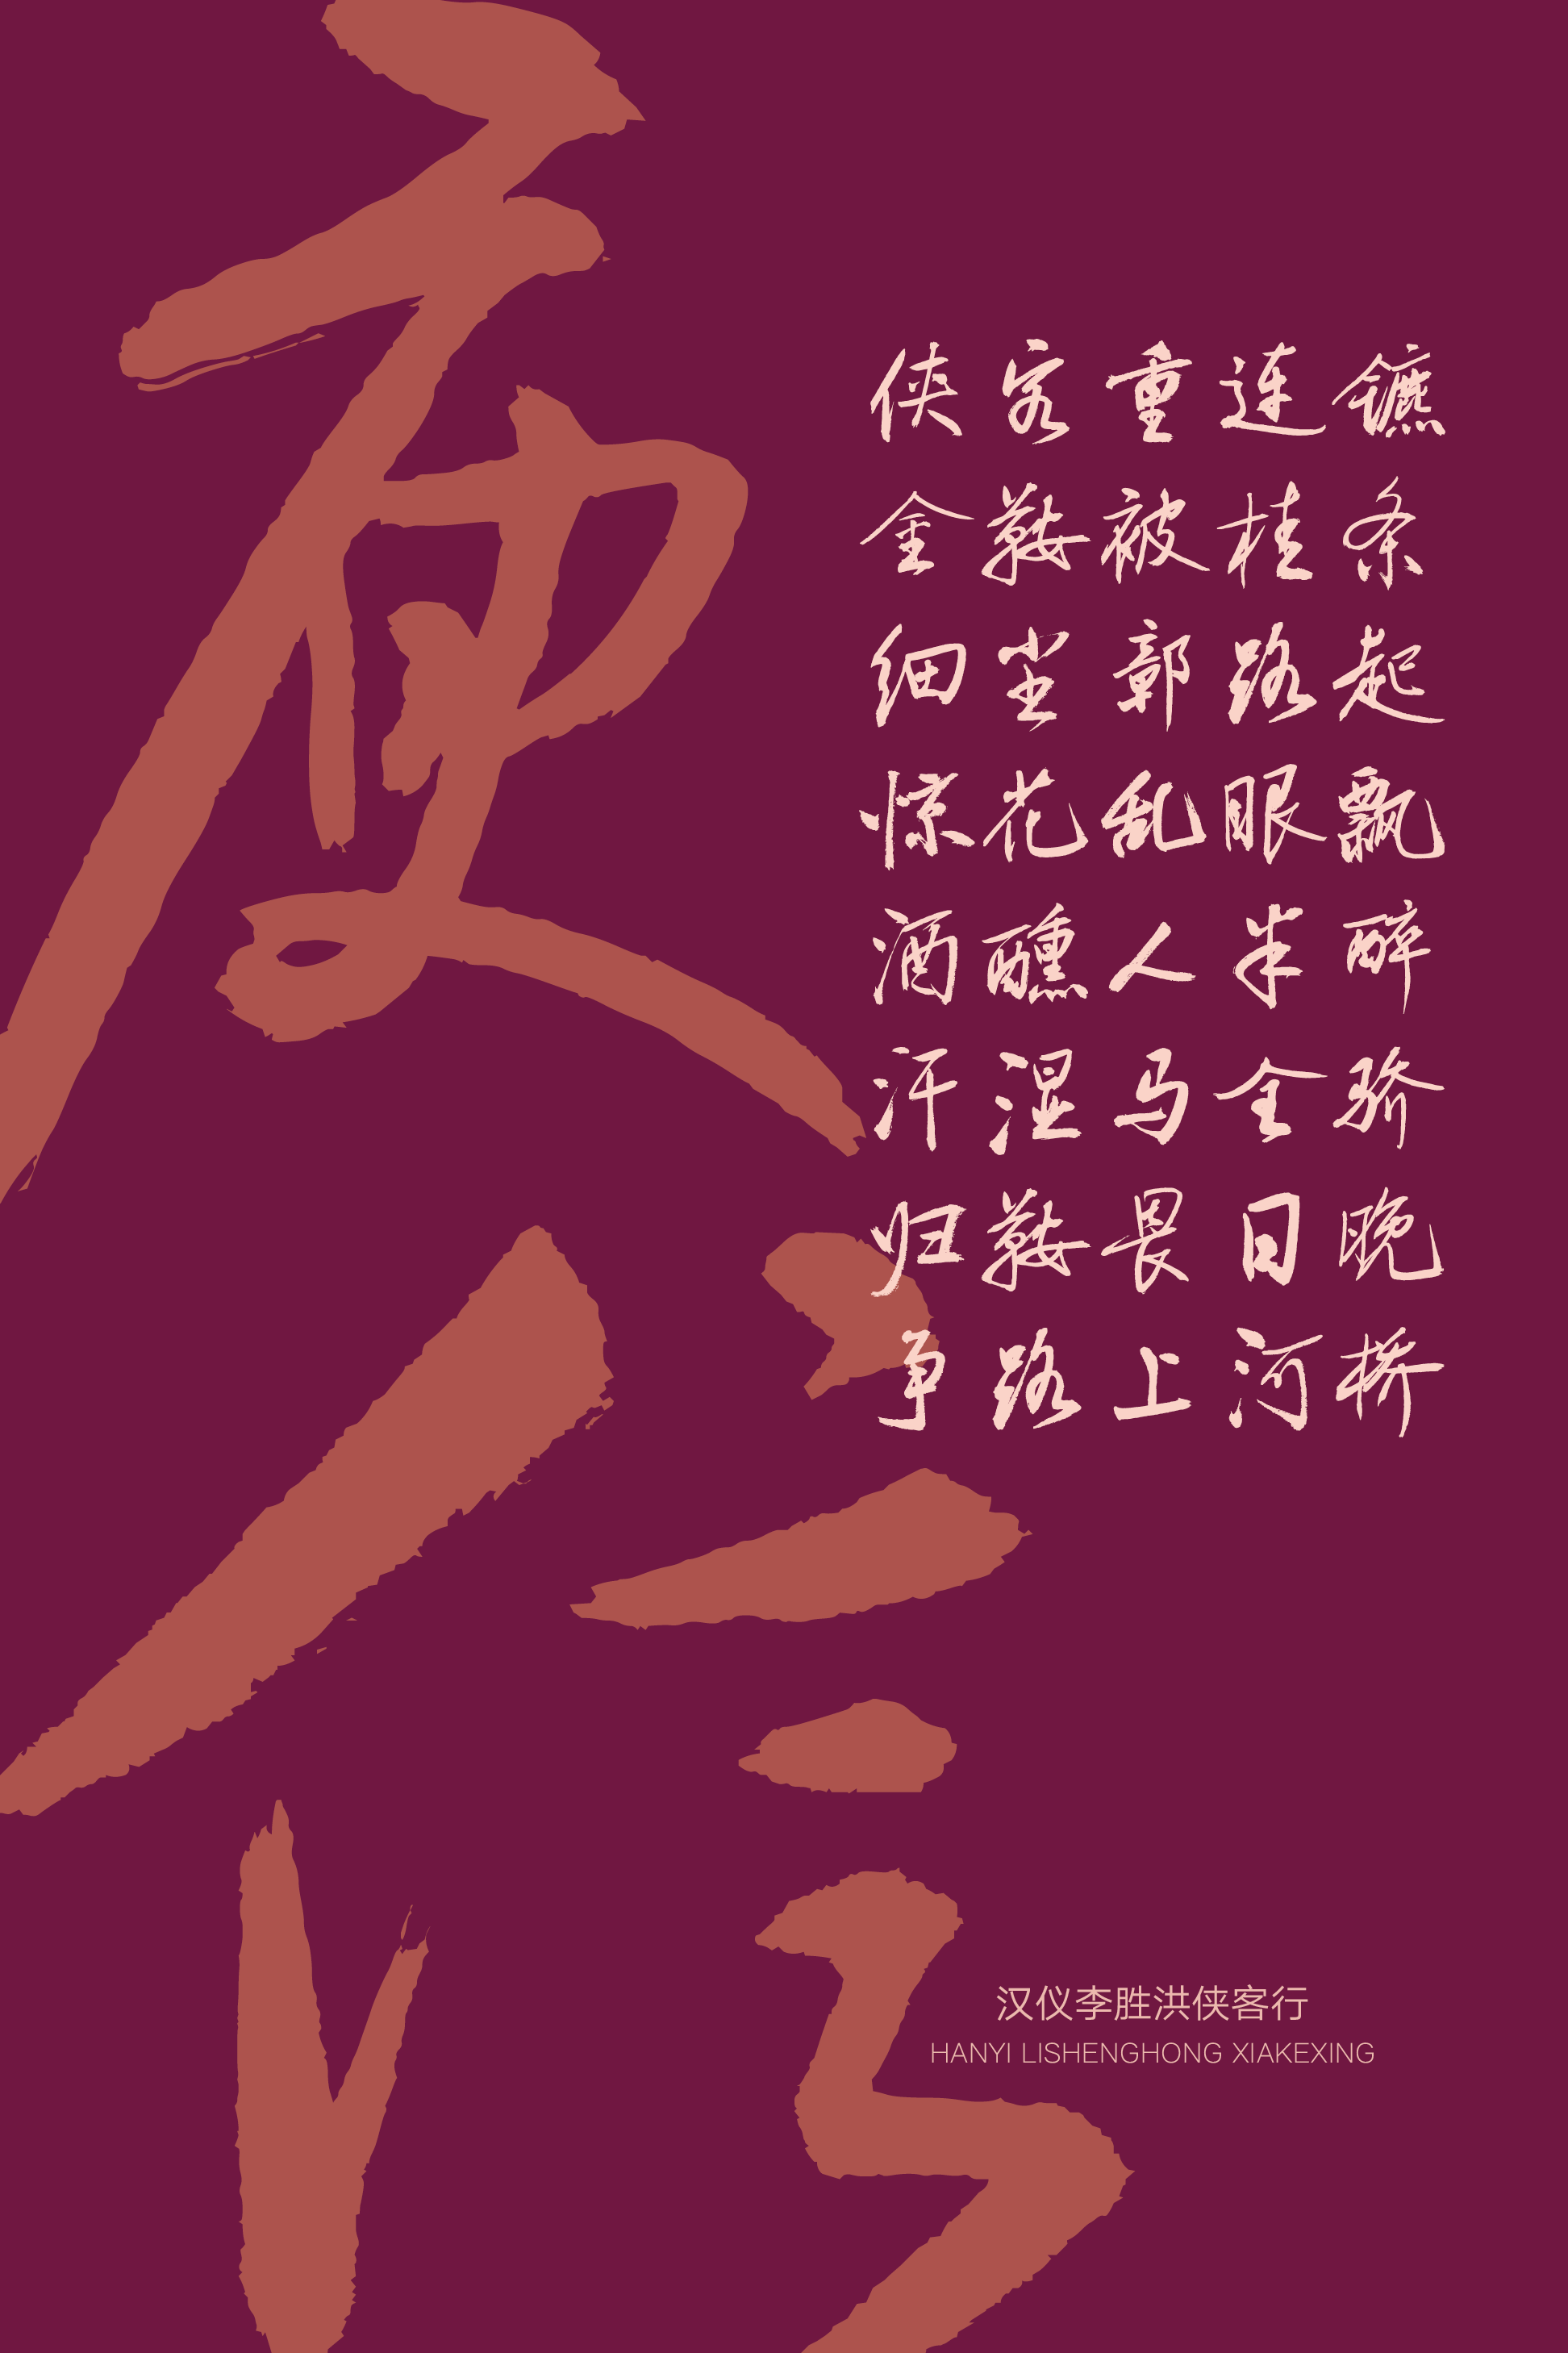 侠客重连镳
金鞍被桂条
细尘鄣路起
惊花乱眼飘
酒醺人半醉
汗湿马全骄
归鞍畏日晚
争路上河桥
汉仪李胜洪侠客行
HANYI LISHENGHONG XIAKEXING